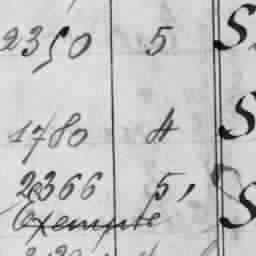 2350 5 S
1780 4 S
2366 5, S
Exempte